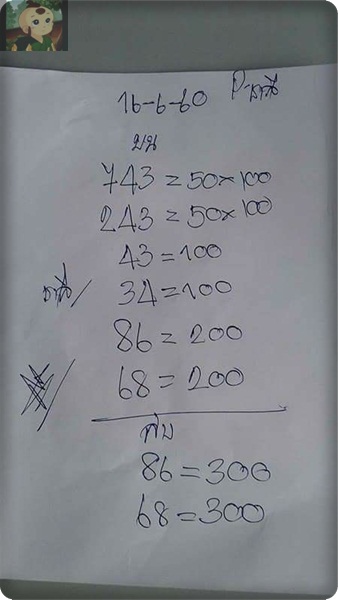 16-6-60
บน
743 = 50×100
243 = 50×100
43 = 100
34 = 100
86 = 200
68 = 200
86 = 300
68 = 300